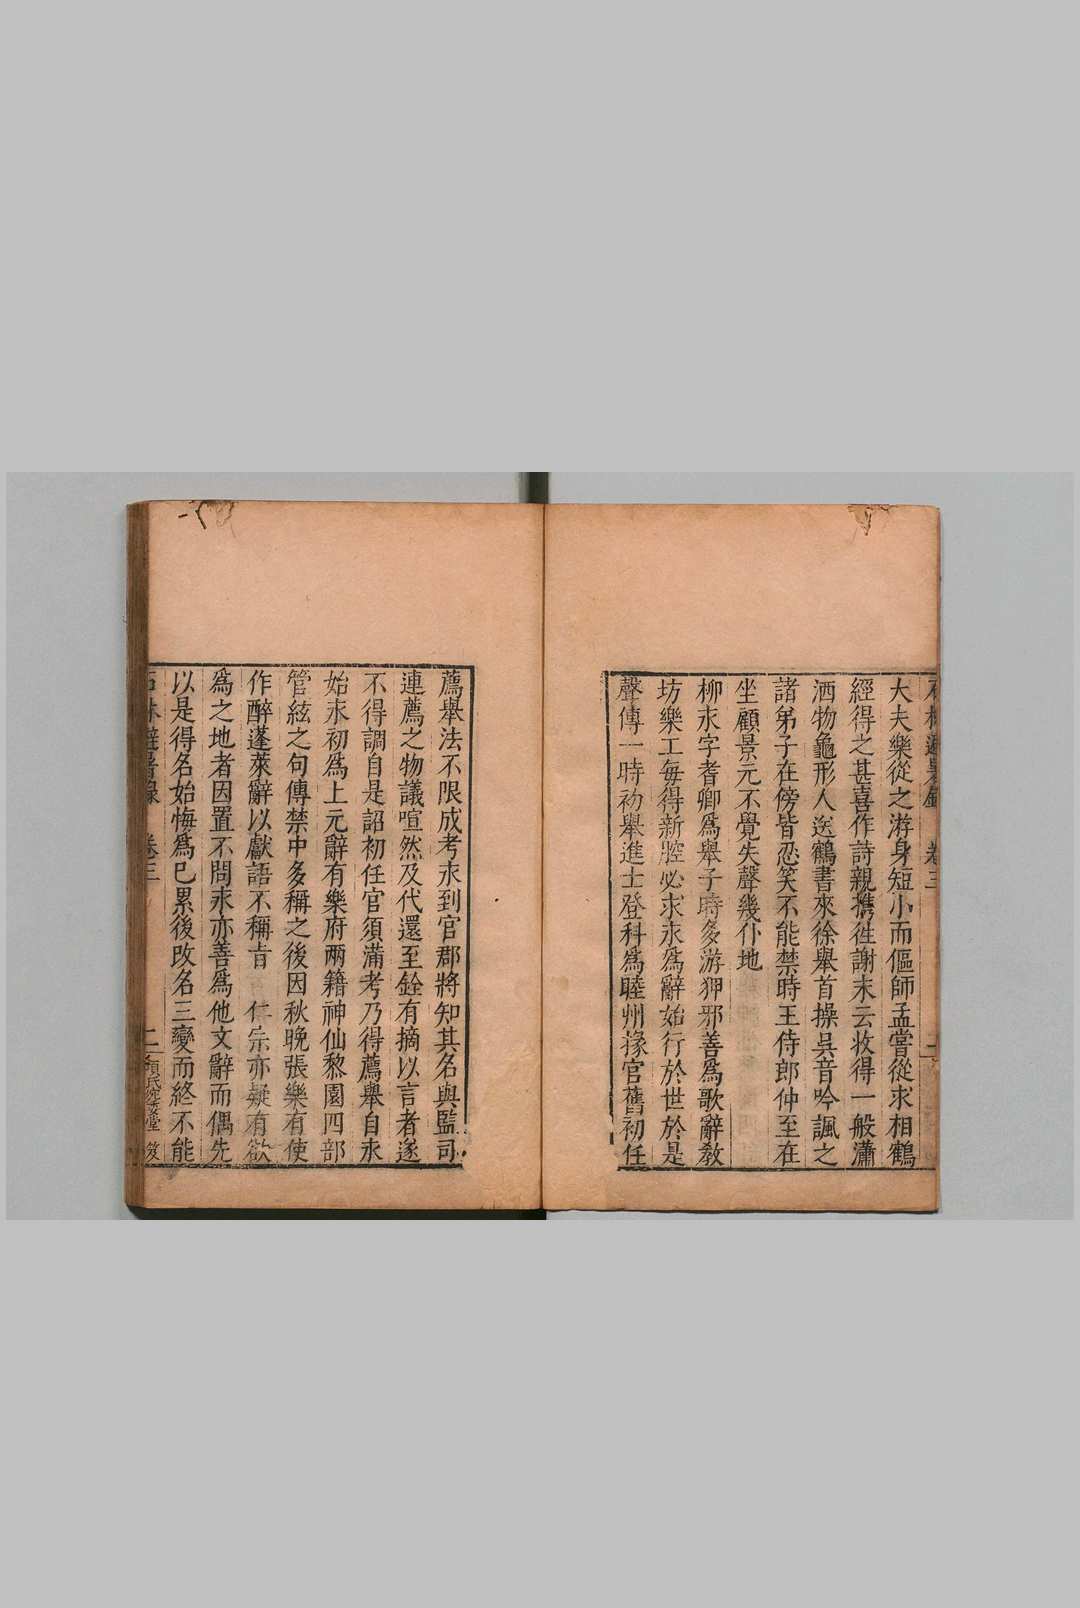 石林避暑錄 卷三 二
大夫樂從之游身短小而傴師孟嘗從求相鶴
經得之甚喜作詩親攜徃謝末云收得一般瀟
洒物龜形人送鶴書來徐舉首操吳音吟諷之
諸弟子在傍皆忍笑不能禁時王侍郎仲至在
坐顧景元不覺失聲幾仆地
柳永字耆卿爲舉子時多游狎邪善爲歌辭教
坊樂工每得新腔必求永爲辭始行於世於是
聲傳一時初舉進士登科爲睦州掾官舊初任
薦舉法不限成考永到官郡將知其名與監司
連薦之物議喧然及代還至銓有摘以言者遂
不得調自是詔初任官須滿考乃得薦舉自永
始永初爲上元辭有樂府兩籍神仙黎園四部
管絃之句傳禁中多稱之後因秋晚張樂有使
作醉蓬萊辭以獻語不稱旨 仁宗亦疑有欲
爲之地者因置不問永亦善爲他文辭而偶先
以是得名始悔爲已累後改名三變而終不能
石林避暑錄 卷三 二 項氏宛委堂 䇿